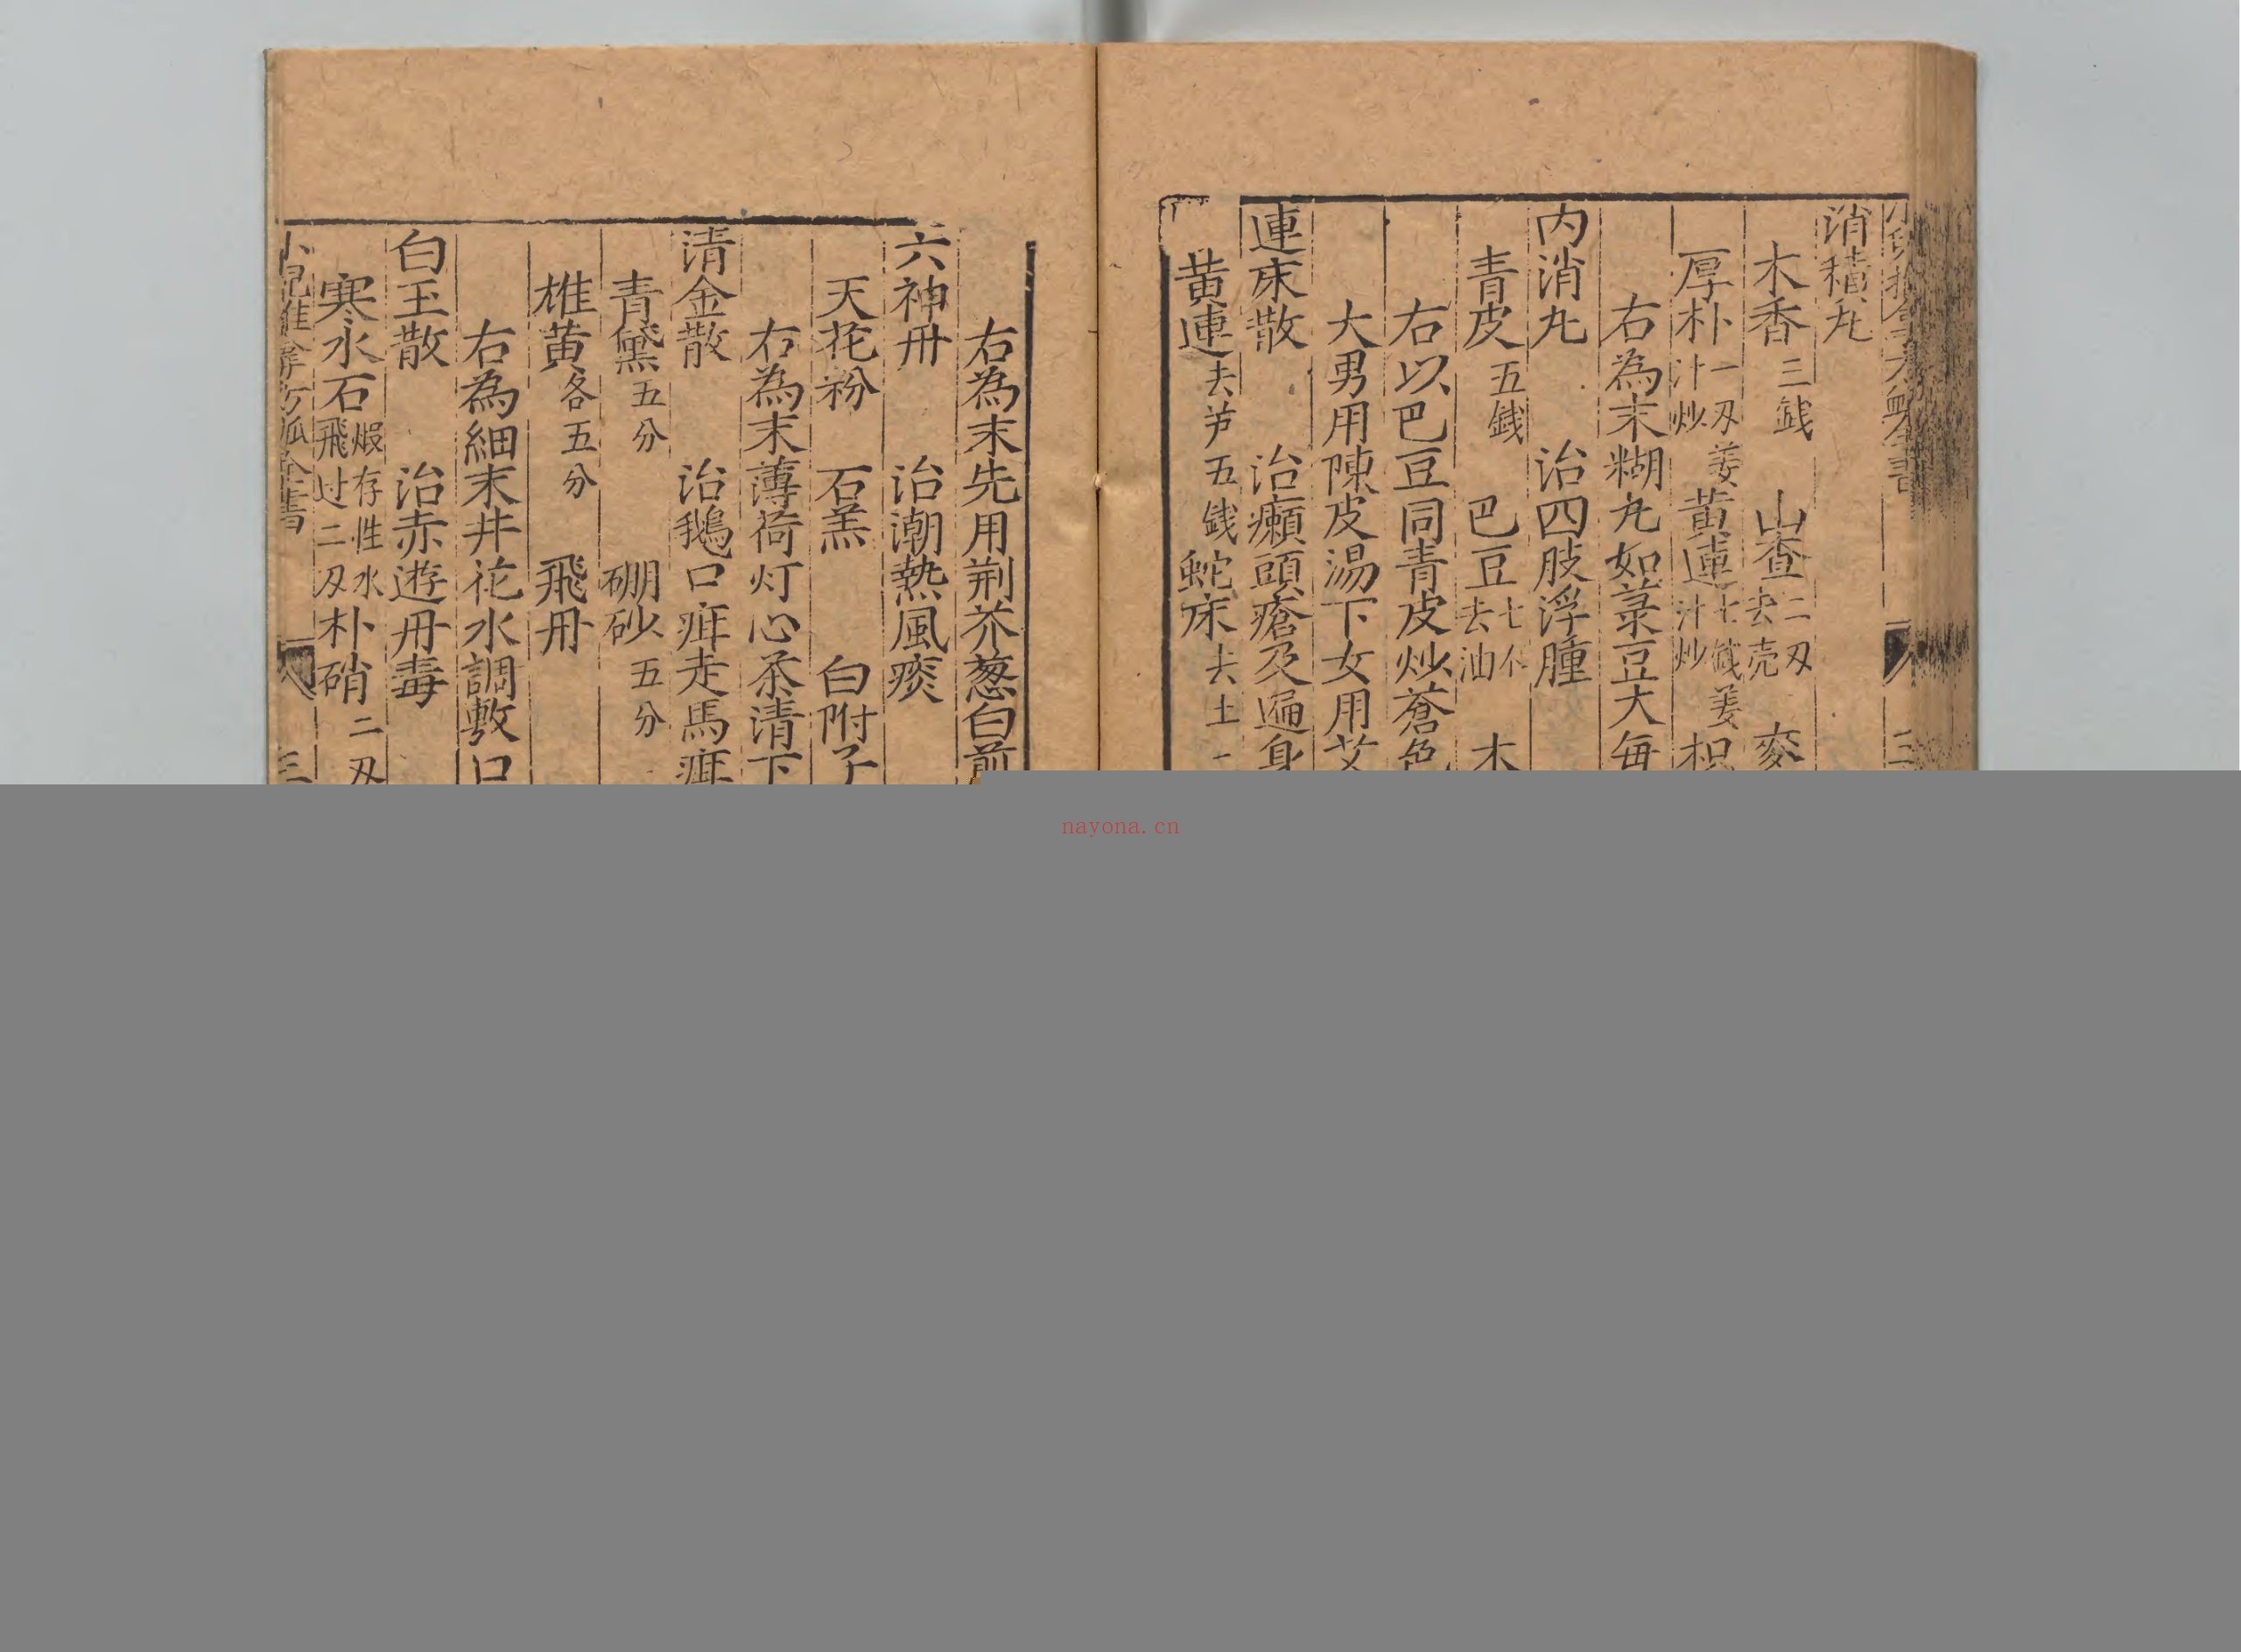 消積丸
木香三錢 山查二刄去壳 麥
厚朴一刄姜汁炒 黄連七錢姜汁炒 枳
右為末糊丸如菉豆大毎
内消丸 治四肢浮腫
青皮五錢 巴豆七个去油 木
右以巴豆同青皮炒蒼色
大男用陳皮湯下女用艾
連床散 治癩頭瘡及遍身
黄連去芦五錢 蛇床去土一
右為末先用荆芥葱白前
六神丹 治潮熱風痰
天花粉 石羔 白附子
右為末薄荷灯心茶清下
清金散 治鵝口疳走馬疳
青黛五分 硼砂五分
雄黄各五分 飛丹
右為細末井花水調敷口
白玉散 治赤遊丹毒
寒水石煅存性水飛过二刄 朴硝二刄
小兒推拿方脉全書 三
nayona.cn